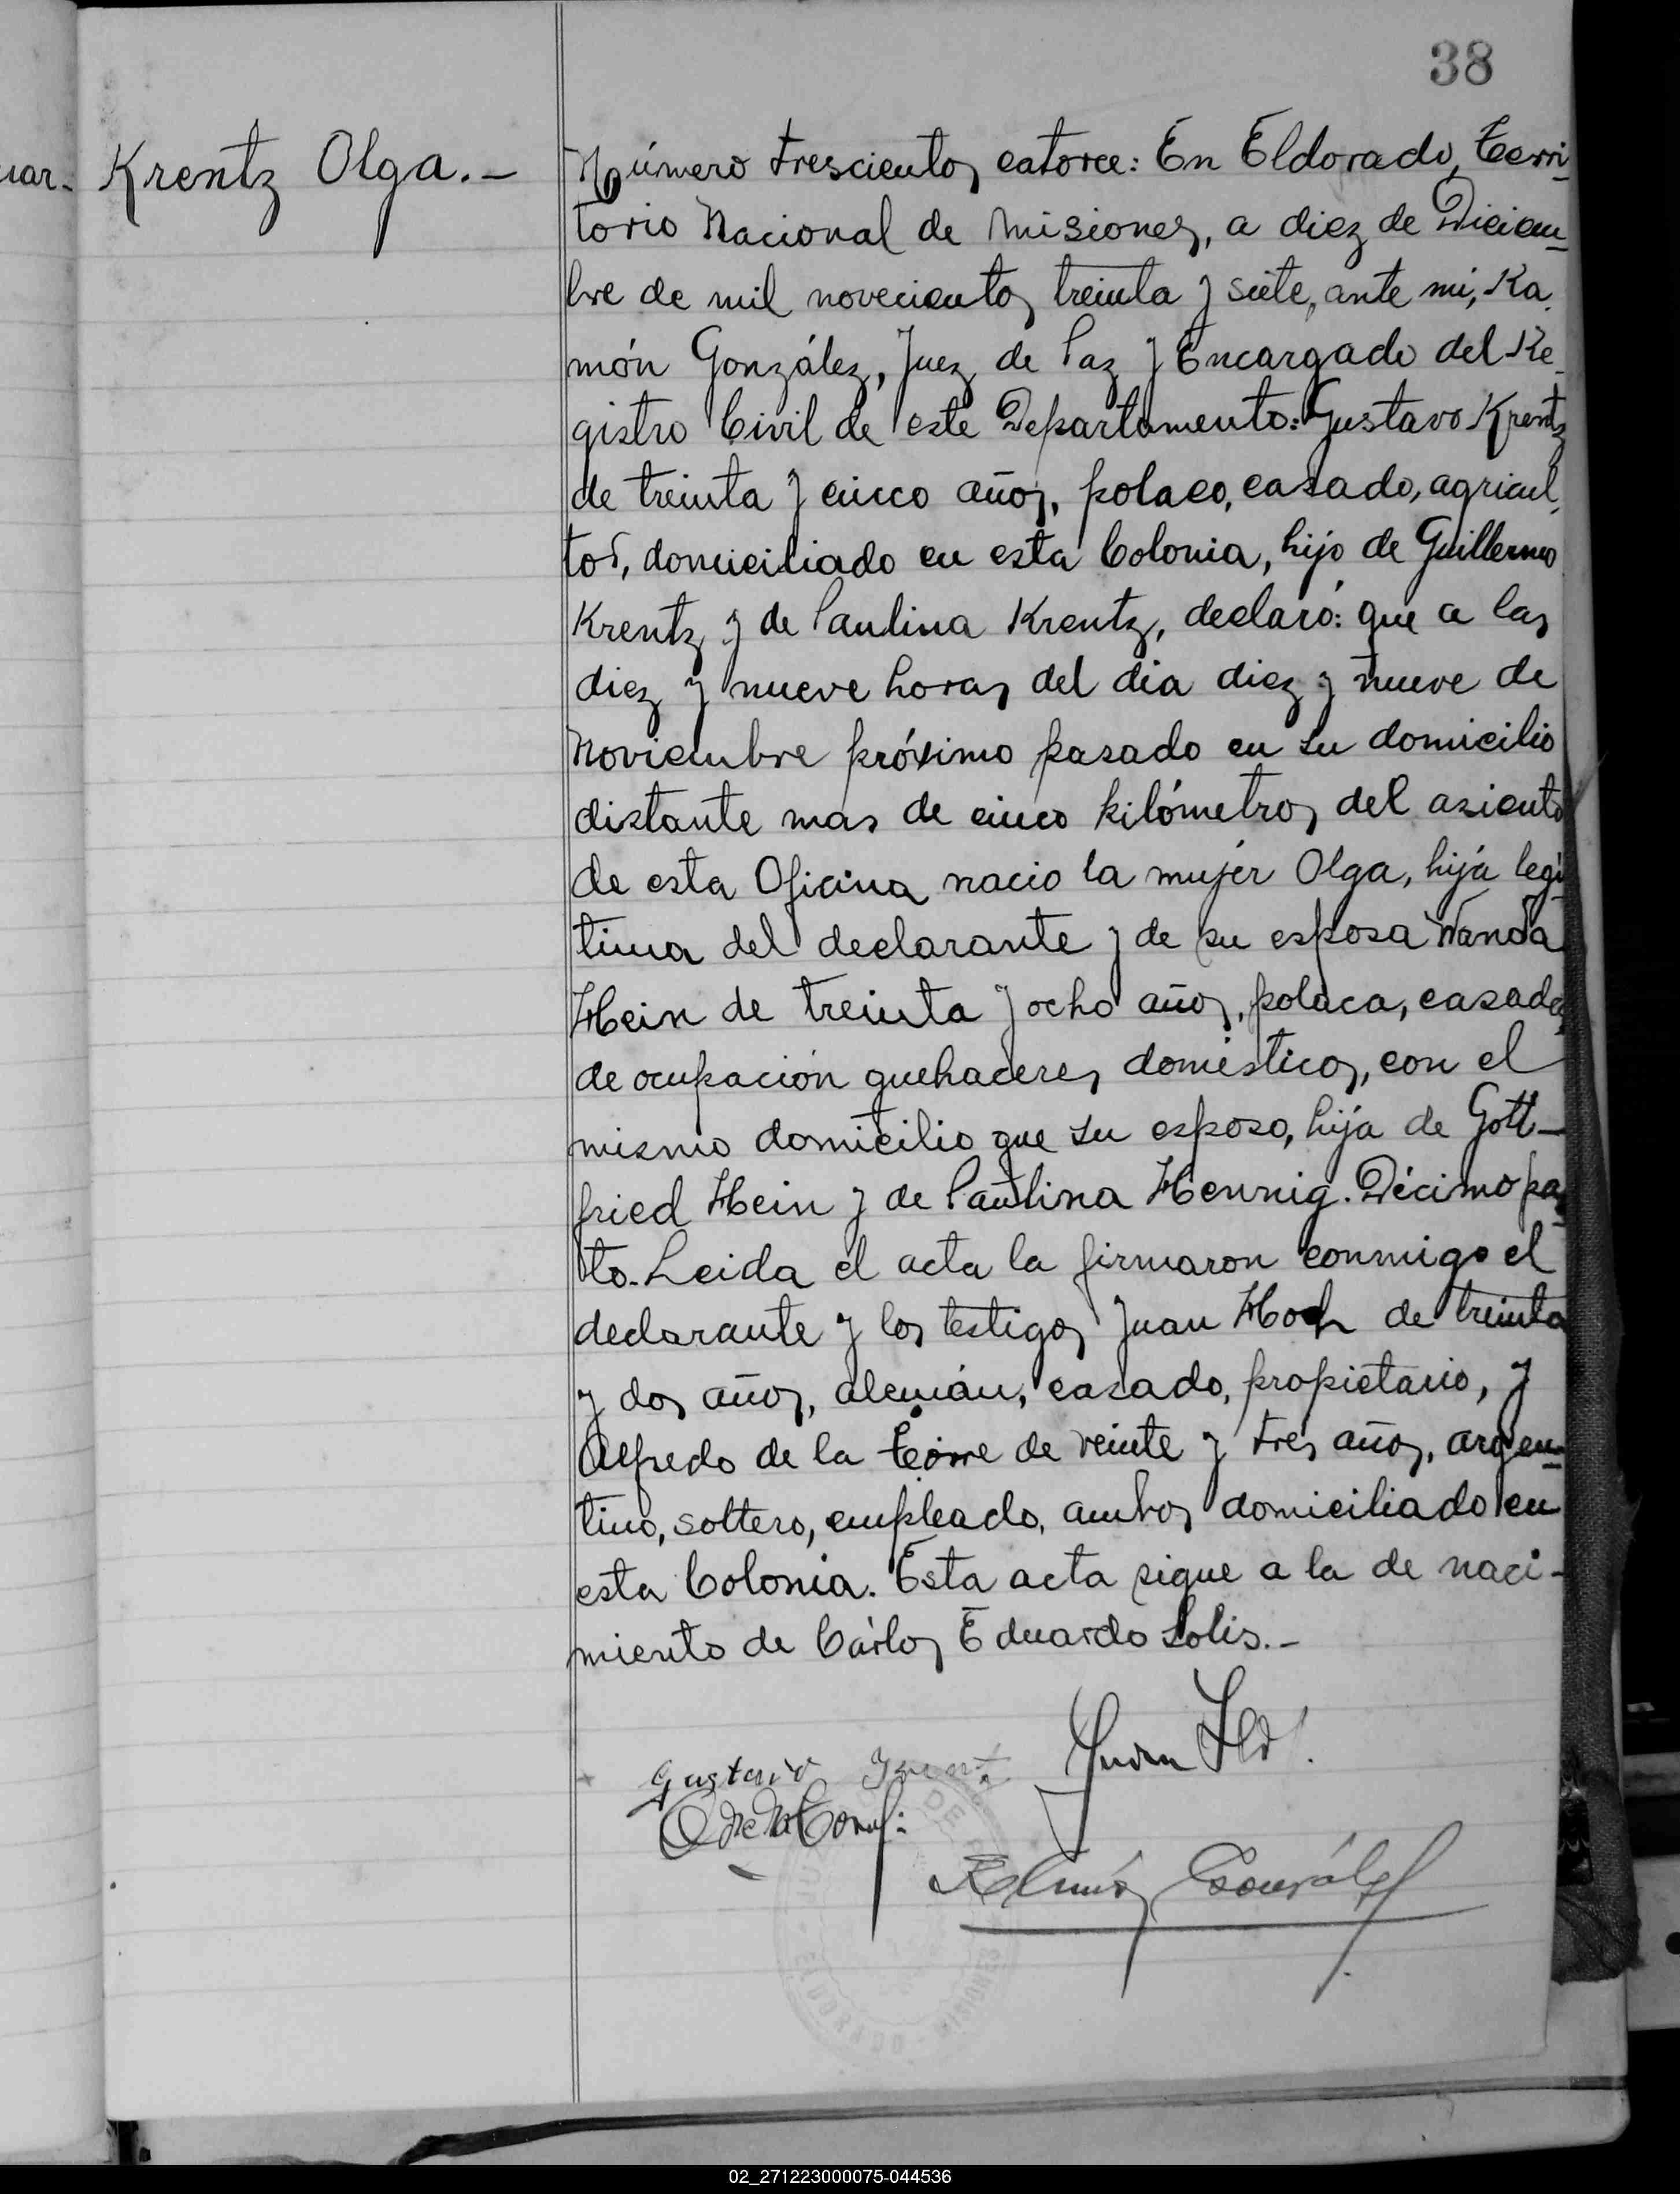 38
uar-
Krentz Olga.-
Número trescientos catorce: En Eldorado, Terri-
torio Nacional de Misiones, a diez de Diciem-
bre de mil novecientos treinta y siete, ante mi, Ra-
món González, Juez de Paz y Encargado del Re-
gistro Civil de este Departamento: Gustavo Krentz
de treinta y cinco años, polaco, casado, agricul-
tor, domiciliado en esta Colonia, hijo de Guillermo
Krentz y de Paulina Krentz, declaró: que a las
diez y nueve horas del día diez y nueve de
Noviembre próximo pasado en su domicilio
distante mas de cinco kilómetros del asiento
de esta Oficina nacio la mujer Olga, hija legí-
tima del declarante y de su esposa Wanda
Hein de treinta y ocho años, polaca, casada,
de ocupación quehaceres domésticos, con el
mismo domicilio que su esposo, hija de Gott-
fried Hein y de Paulina Hennig. Décimo par-
to. Leida el acta la firmaron conmigo el
declarante y los testigos Juan Hoch de treinta
y dos años, alemán, casado, propietario, y
Alfredo de la Torre de veinte y tres años, argen-
tino, soltero, empleado, ambos domiciliado en
esta Colonia. Esta acta sigue a la de naci-
miento de Cárlos Eduardo Solis.-
Gustavo Juan
Ramón González
ELDORADO - MISIONES
02_271223000075-044536